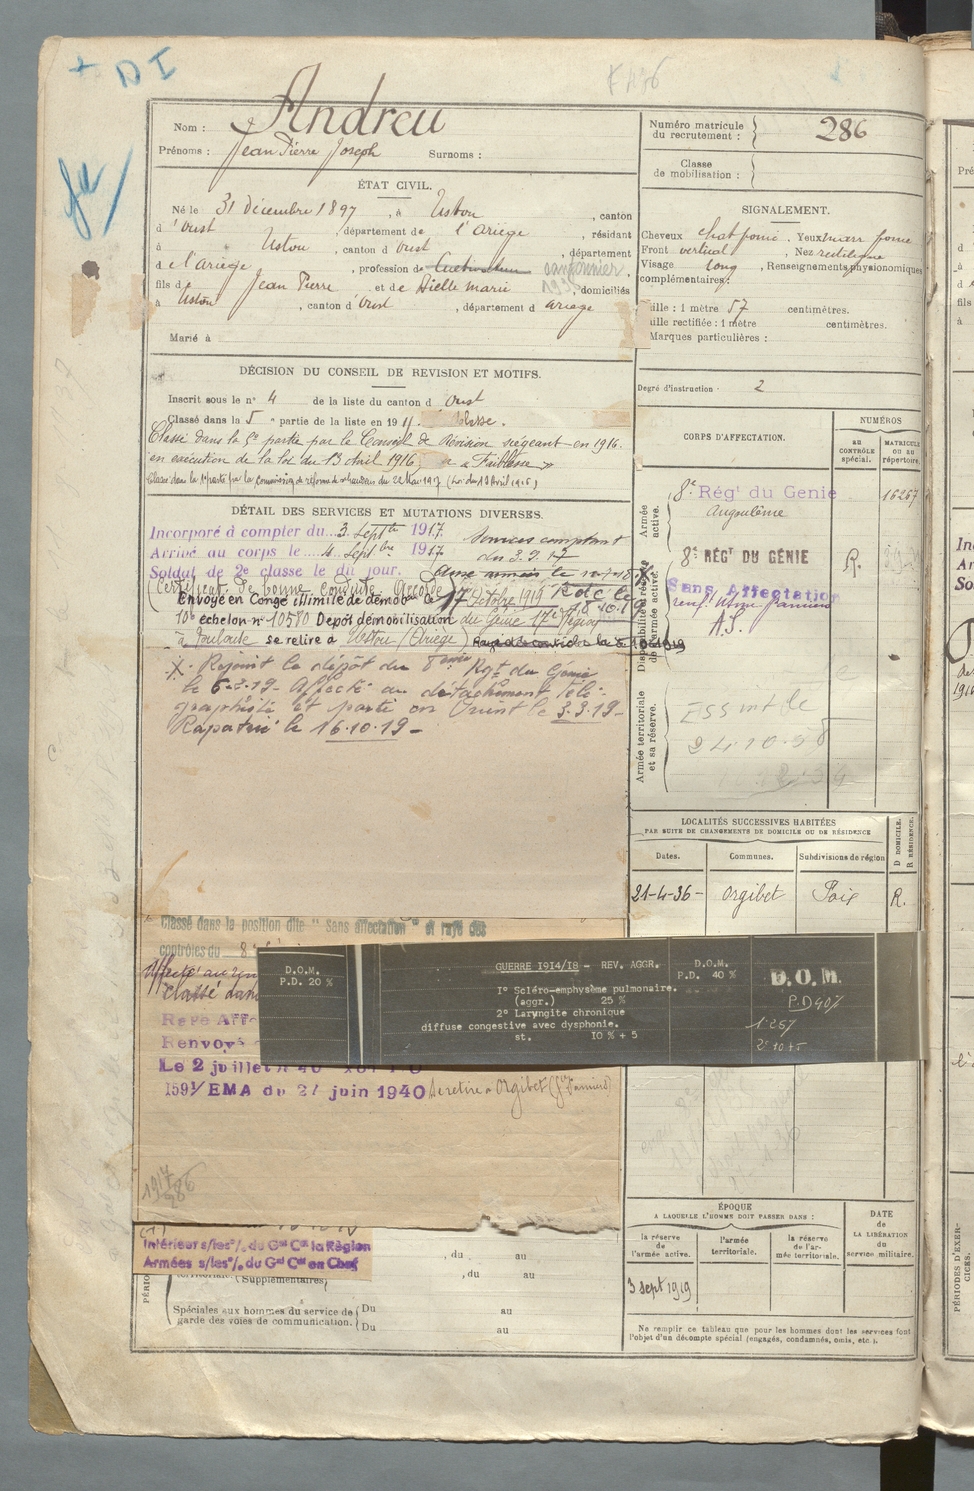 + D I
Nom : Andreu
Prénoms : Jean Pierre Joseph Surnoms :
ÉTAT CIVIL.
Né le 31 décembre 1897, à Ustou, canton
d'Oust, département de l'Ariège, résidant
à Ustou, canton d'Oust, département
d e l'ariège, profession de Cultivateur cantonnier,
fils d Jean Pierre et de Dielle marie domiciliés
à Ustou, canton d'Oust, département d ariege
Marié à
DÉCISION DU CONSEIL DE REVISION ET MOTIFS.
Inscrit sous le n° 4 de la liste du canton d Oust
Classé dans la 5 e partie de la liste en 191
Classé dans la 5e partie par le Conseil de Révision siégeant en 1916.
en exécution de la loi du 13 Avril 1916 " Faiblesse "
Classé dans la 1e partie par la commission de réforme du 22 Mai 1917 (Loi du 13 Avril 1916)
DÉTAIL DES SERVICES ET MUTATIONS DIVERSES.
Incorporé à compter du 3 Septbre 1917. Services comptant
Arrivé au corps le 4 Septbre 1917 du 3.9.17
Soldat de 2e classe le dit jour.
Certificat de bonne Conduite Accordé
Envoyé en Congé illimité de démobon le 17 Octobre 1919
10e échelon n° 10580 Dépôt démobilisation du Génie 17e Région
à Toulouse se retire à Ustou (Ariège)
X. Rejoint le dépôt du 8ème Rgt du Génie
le 6-2-19- Affecté au détachement télé-
graphiste et parti en Orient le 3.3.19-
Rapatrié le 16.10.19-
Classé dans la position dite " Sans affectation " et rayé des
contrôles du 8e
classé dans
Rayé Affe
Renvoyé
Le 2 juillet
1591/EMA du 27 juin 1940 Se retire à Orgibet
D.O.M.
P.D. 20 %
GUERRE 1914/18 - REV. AGGR.
1° Scléro-emphysème pulmonaire.
(aggr.) 25 %
2° Laryngite chronique
diffuse congestive avec dysphonie.
st. 10 % + 5
D.O.M.
P.D. 40 %
D.O.M.
P.D 40%
1° 25%
2° 10+5
1917
286
Intérieur s/les °/. du Gal Ct la Région
Armées s/les °/. du Gal Ct en Chef
territoriale. (Supplémentaires, , du au
, du au
Spéciales aux hommes du service de garde des voies de communication. Du au
Du au
Numéro matricule du recrutement : 286
Classe de mobilisation :
SIGNALEMENT.
Cheveux chat foncé. Yeux marr foncé
Front vertical, Nez rectiligne
Visage long, Renseignements physionomiques
complémentaires :
Taille : 1 mètre 57 centimètres.
Taille rectifiée : 1 mètre centimètres.
Marques particulières :
Degré d'instruction : 2
CORPS D'AFFECTATION.
NUMÉROS
AU CONTRÔLE spécial.
MATRICULE OU AU répertoire.
Armée active.
8e Régt du Genie 16267
Angoulême
Disponibilité et réserve de l'armée active.
8e RÉGT DU GÉNIE R.
Sans Affectation
A.S.
Armée territoriale et sa réserve.
24.10.38
LOCALITÉS SUCCESSIVES HABITÉES
PAR SUITE DE CHANGEMENTS DE DOMICILE OU DE RÉSIDENCE
Dates. Communes. Subdivisions de région D DOMICILE. R RÉSIDENCE.
21-4-36- Orgibet Foix R.
ÉPOQUE
A LAQUELLE L'HOMME DOIT PASSER DANS :
la réserve de l'armée active.
l'armée territoriale.
la réserve de l'armée territoriale.
DATE de LA LIBÉRATION du service militaire.
3 sept 1919
Ne remplir ce tableau que pour les hommes dont les services font
l'objet d'un décompte spécial (engagés, condamnés, omis, etc.).
PÉRIODES D'EXERCICES.